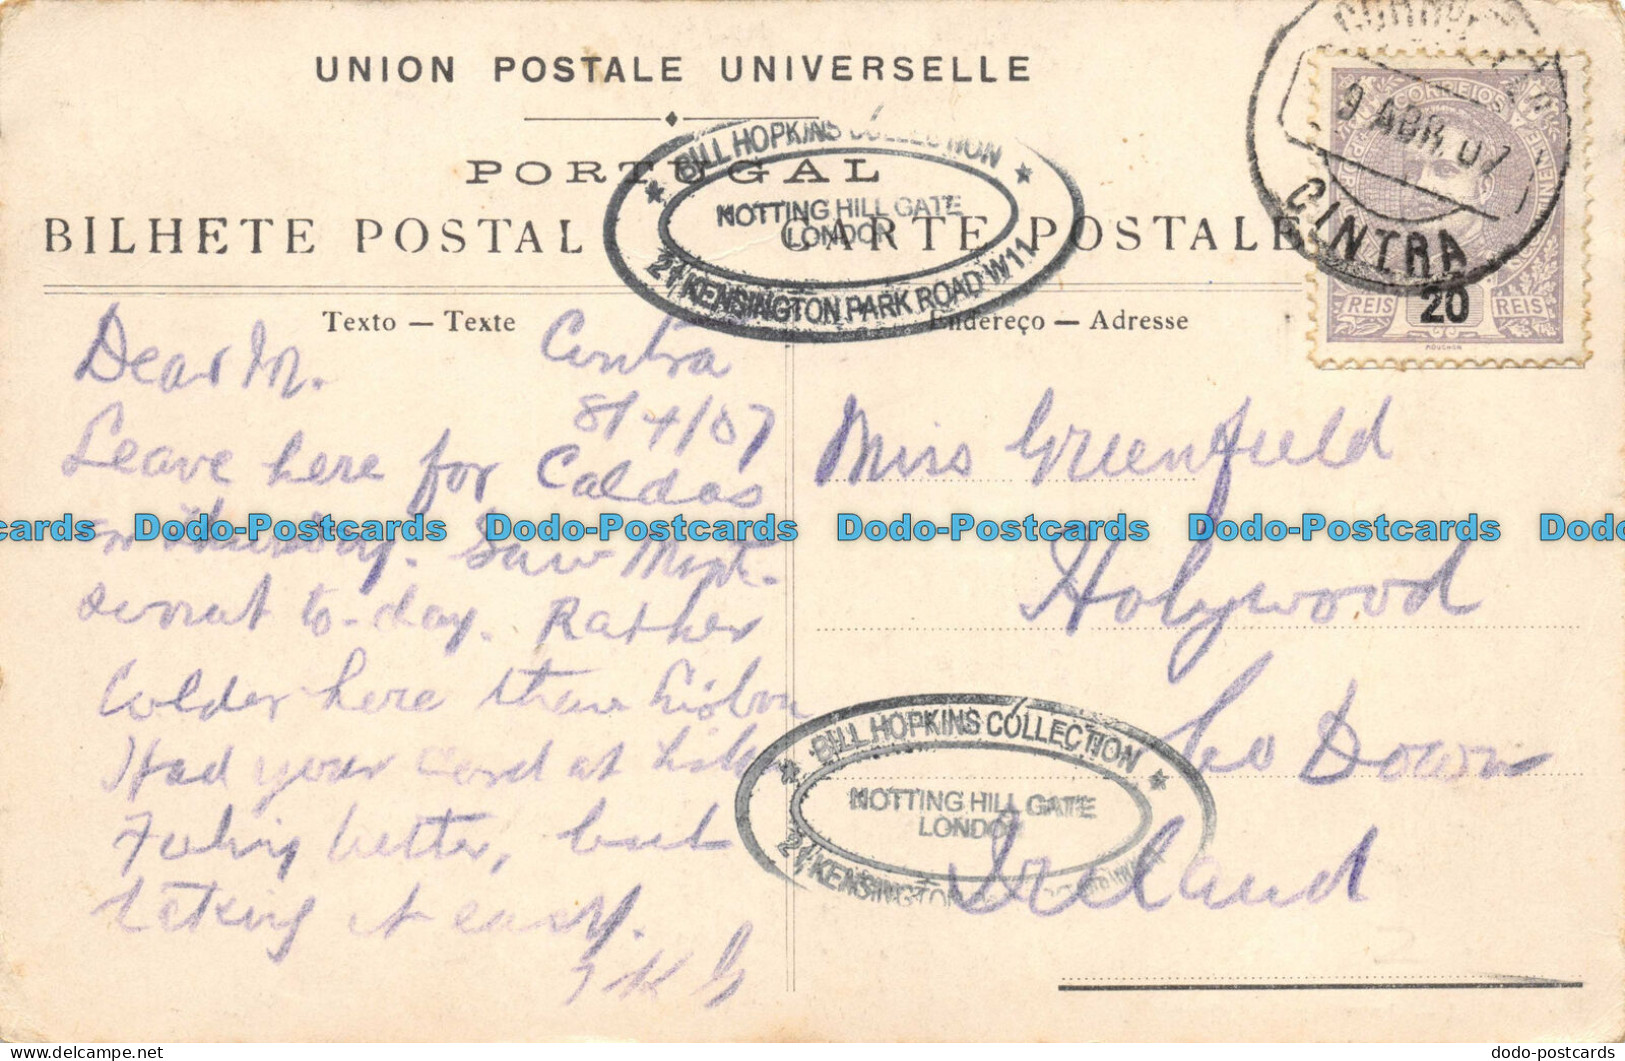 UNION POSTALE UNIVERSELLE
PORTUGAL
BILHETE POSTAL CARTE POSTALE
BILL HOPKINS COLLECTION
NOTTING HILL GATE
LONDON
KENSINGTON PARK ROAD W11
9 ABR. 07
CINTRA
CORREIOS
REIS 20 REIS
MOUCHON
Texto — Texte
Endereço — Adresse
Dear M.
Cintra
8/4/07
Leave here for Caldas
on Thursday. Saw Mont-
serrat to-day. Rather
Colder here than Lisbon
Had your card at
Feeling better, but
taking it easy.
Miss Greenfield
Holywood
Co Down
Ireland
BILL HOPKINS COLLECTION
NOTTING HILL GATE
LONDON
KENSINGTON
Dodo-Postcards Dodo-Postcards Dodo-Postcards Dodo-Postcards
dodo-postcards.com